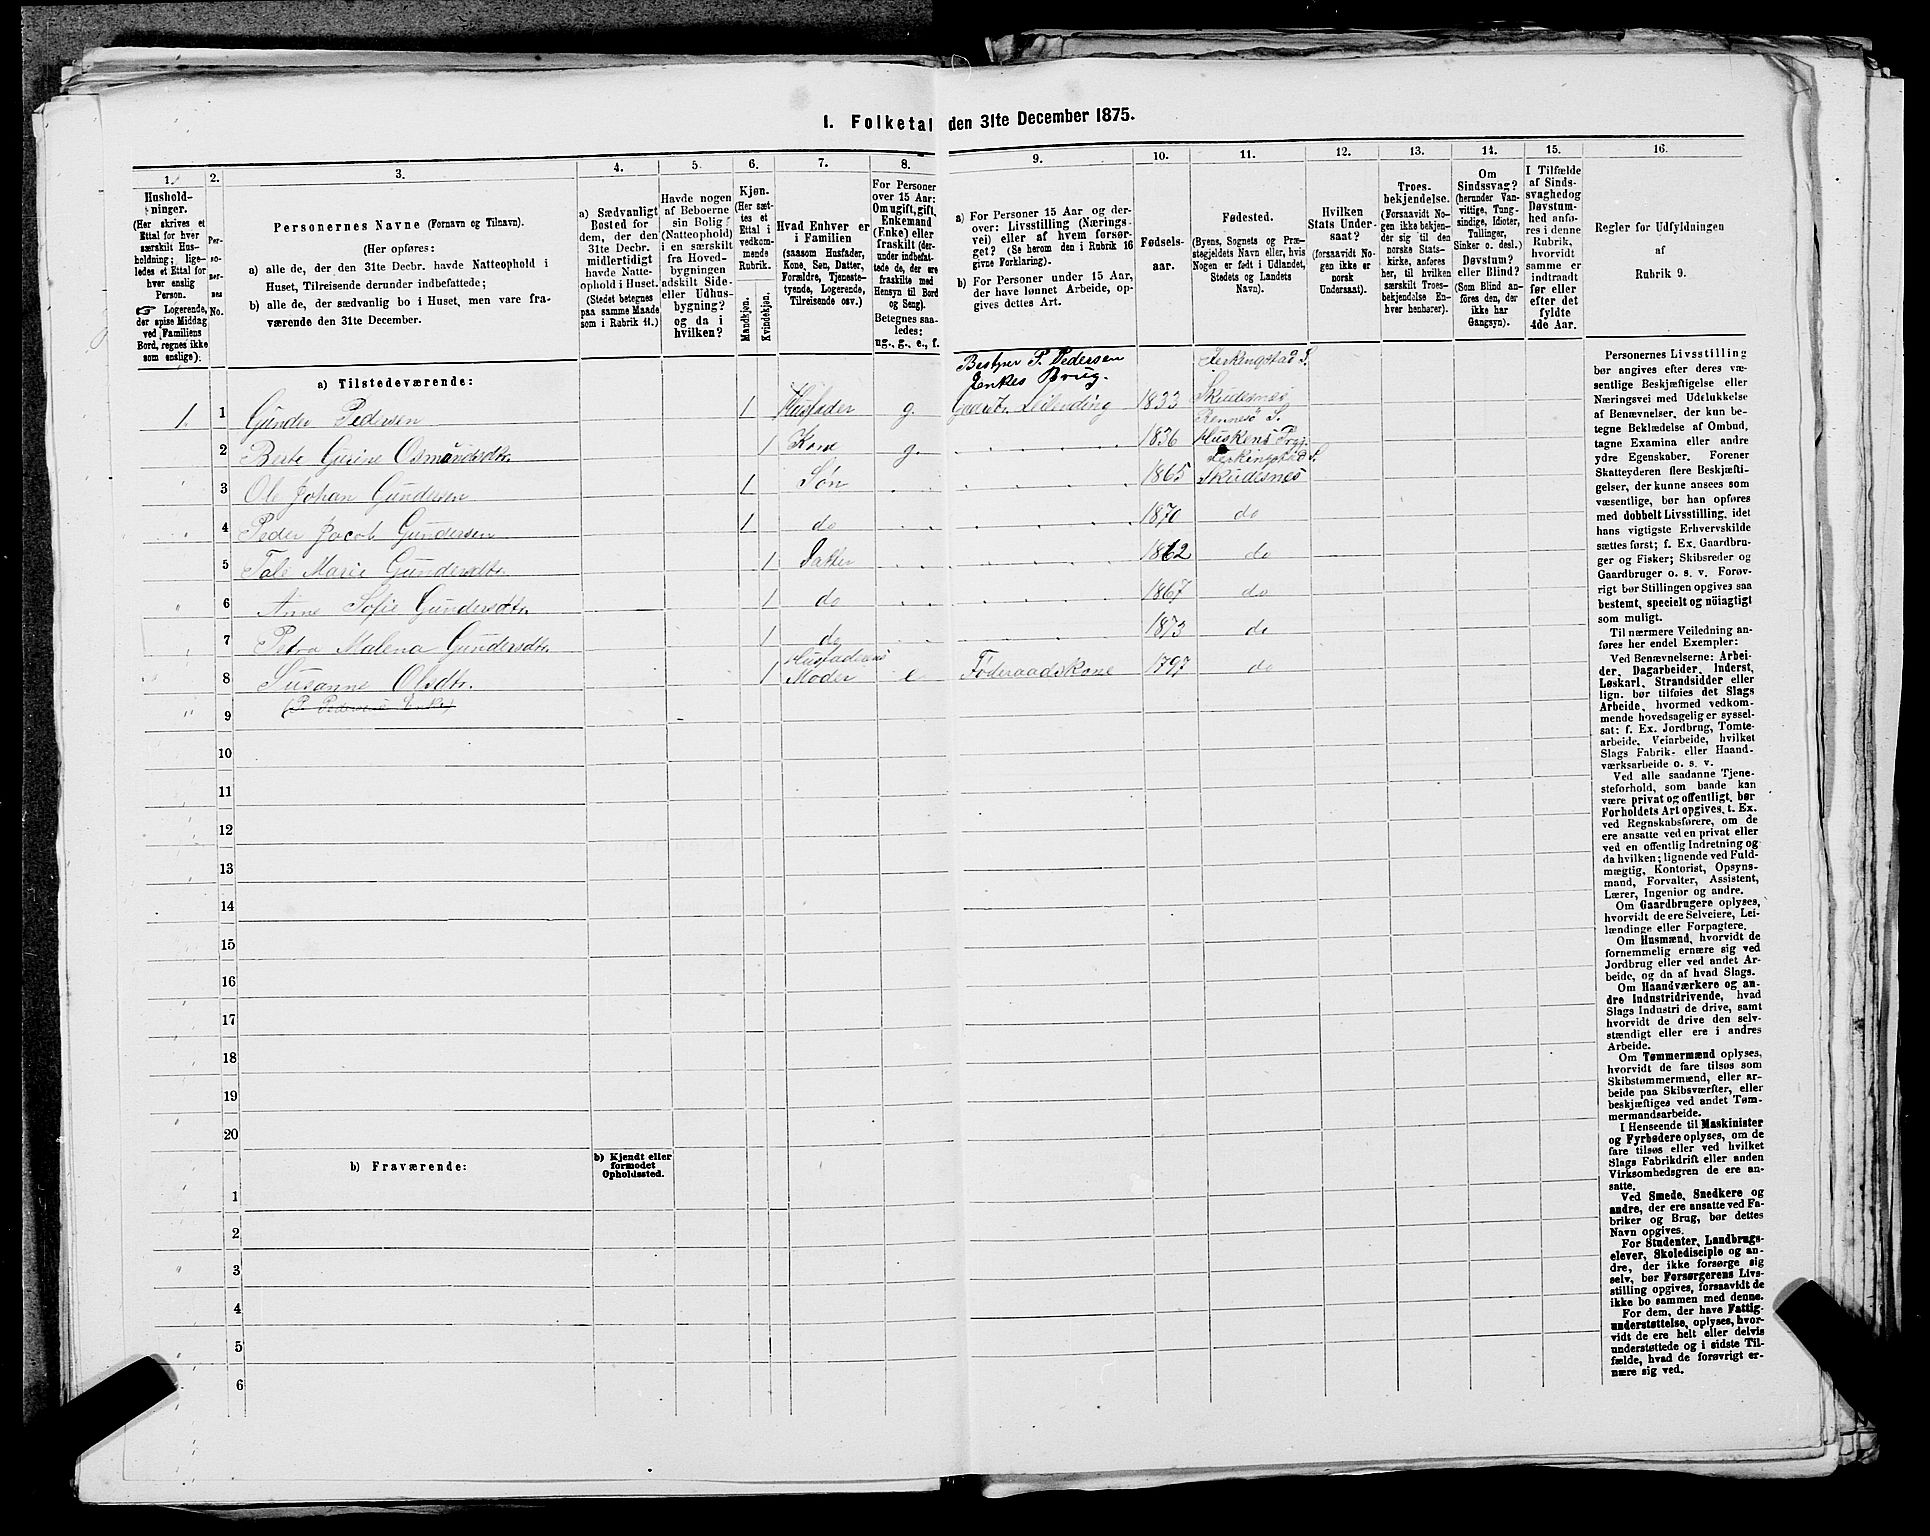 1. Folketal den 31te December 1875.
1.
2.
3.
4.
5.
6.
7.
8.
9.
10.
11.
12.
13.
14.
15.
16.
Hushold-
ninger.
(Her skrives et
Ettal for hver
særskilt Hus-
holdning; lige-
ledes et Ettal for
hver enslig
Person.
☞ Logerende,
der spise Middag
ved Familiens
Bord, regnes ikke
som enslige).
Per-
so-
ner-
nes
No.
Personernes Navne (Fornavn og Tilnavn).
(Her opføres:
a) alle de, der den 31te Decbr. havde Natteophold i
Huset, Tilreisende derunder indbefattede;
b) alle de, der sædvanlig bo i Huset, men vare fra-
værende den 31te December.
a) Sædvanligt
Bosted for
dem, der den
31te Decbr.
midlertidigt
havde Natte-
ophold i Huset.
(Stedet betegnes
paa samme Maade
som i Rubrik 11.)
Havde nogen
af Beboerne
sin Bolig
(Natteophold)
i en særskilt
fra Hoved-
bygningen
adskilt Side-
eller Udhus-
bygning?
og da i
hvilken?
Kjøn.
(Her sæt-
tes et
Ettal i
vedkom-
mende
Rubrik.
Mandkjøn.
Kvindekjøn.
Hvad Enhver er
i Familien
(saasom Husfader,
Kone, Søn, Datter,
Forældre, Tjeneste-
tyende, Logerende,
Tilreisende osv.)
For Personer
over 15 Aar:
Om ugift, gift,
Enkemand
(Enke) eller
fraskilt (der-
under indbefat-
tede de, der ere
fraskilte med
Hensyn til Bord
og Seng).
Betegnes saa-
ledes:
ug., g., e., f.
a) For Personer 15 Aar og der-
over: Livsstilling (Nærings-
vei) eller af hvem forsør-
get? (Se herom den i Rubrik 16
givne Forklaring).
b) For Personer under 15 Aar,
der have lønnet Arbeide, op-
gives dettes Art.
Fødsels-
aar.
Fødested.
(Byens, Sognets og Præ-
stegjeldets Navn eller, hvis
Nogen er født i Udlandet,
Stedets og Landets
Navn).
Hvilken
Stats Under-
saat?
(forsaavidt No-
gen ikke er
norsk
Undersaat).
Troes-
bekjendelse.
(Forsaavidt No-
gen ikke bekjen-
der sig til den
norske Stats-
kirke, anføres
her, til hvilken
særskilt Troes-
bekjendelse En-
hver henhører).
Om
Sindssvag?
(herunder Van-
vittige, Tung-
sindige, Idioter,
Tullinger,
Sinker o. desl.)
Døvstum?
eller Blind?
(Som Blind an-
føres den, der
ikke har
Gangsyn).
I Tilfælde
af Sinds-
svaghed og
Døvstum-
hed anfø-
res i denne
Rubrik,
hvorvidt
samme er
indtraadt
før eller
efter det
fyldte
4de Aar.
Regler for Udfyldningen
af
Rubrik 9.
a) Tilstedeværende:
Bestyrer P. Pedersen
Enkes Brug.
Ferkingstad S.
1. 1 Gunder Pedersen 1 Husfader g. Gaardbr. Leilending 1833 Skudesnes
Rennesø S.
2 Berte Gurine Osmundsdtr. 1 Kone g. 1836 Huskens Prgj.
Ferkingstad S.
3 Ole Johan Gundersen 1 Søn 1865 Skudesnes
4 Peder Jacob Gundersen 1 do 1870 do
5 Tale Marie Gundersdtr. 1 Datter 1862 do
6 Anne Sofie Gundersdtr. 1 do 1867 do
7 Petra Malena Gundersdtr. 1 do 1873 do
8 Susanne Olsdtr. 1 Husfaderens Moder e Føderaadskone 1797 do
(P. Pedersens Enke)
9
10
11
12
13
14
15
16
17
18
19
20
b) Fraværende:
b) Kjendt eller
formodet
Opholdssted.
1
2
3
4
5
6
Personernes Livsstilling
bør angives efter deres væ-
sentlige Beskjæftigelse eller
Næringsvei med Udelukkelse
af Benævnelser, der kun be-
tegne Beklædelse af Ombud,
tagne Examina eller andre
ydre Egenskaber. Forener
Skatteyderen flere Beskjæfti-
gelser, der kunne ansees som
væsentlige, bør han opføres
med dobbelt Livsstilling, idet
hans vigtigste Erhvervskilde
sættes først; f. Ex. Gaardbru-
ger og Fisker; Skibsreder og
Gaardbruger o. s. v. Forøv-
rigt bør Stillingen opgives saa
bestemt, specielt og nöiagtigt
som muligt.
Til nærmere Veiledning an-
føres her endel Exempler:
Ved Benævnelserne: Arbei-
der, Dagarbeider, Inderst,
Løskarl, Strandsidder eller
lign. bør tilføies det Slags
Arbeide, hvormed vedkom-
mende hovedsagelig er syssel-
sat: f. Ex. Jordbrug, Tomte-
arbeide, Veiarbeide, hvilket
Slags Fabrik- eller Haand-
værksarbeide o. s. v.
Ved alle saadanne Tjene-
steforhold, som baade kan
være privat og offentligt, bør
Forholdets Art opgives, t. Ex.
ved Regnskabsførere, om de
ere ansatte ved en privat eller
ved en offentlig Indretning og
da hvilken; lignende ved Fuld-
mægtig, Kontorist, Opsyns-
mand, Forvalter, Assistent,
Lærer, Ingeniør og andre.
Om Gaardbrugere oplyses,
hvorvidt de ere Selveiere, Lei-
lændinge eller Forpagtere.
Om Husmænd, hvorvidt de
fornemmelig ernære sig ved
Jordbrug eller ved andet Ar-
beide, og da af hvad Slags.
Om Haandværkere og an-
dre Industridrivende, hvad
Slags Industri de drive, samt
hvorvidt de drive den selv-
stændigt eller ere i andres
Arbeide.
Om Tømmermænd oplyses,
hvorvidt de fare tilsøs som
Skibstømmermænd, eller ar-
beide paa Skibsværfter, eller
beskjæftiges ved andet Tøm-
mermandsarbeide.
I Henseende til Maskinister
og Fyrbødere oplyses, om de
fare tilsøs eller ved hvilket
Slags Fabrikdrift eller anden
Virksomhedsgren de ere an-
satte.
Ved Smede, Snedkere og
andre, der ere ansatte ved Fa-
briker og Brug, bør dettes
Navn opgives.
For Studenter, Landbrugs-
elever, Skoledisciple og an-
dre, der ikke forsørge sig
selv, bør Forsørgerens Livs-
stilling opgives, forsaavidt de
ikke bo sammen med denne.
For dem, der have Fattig-
understøttelse, oplyses, hvor-
vidt de ere helt eller delvis
understøttede og i sidste Til-
fælde, hvad de forøvrigt er-
nære sig ved.